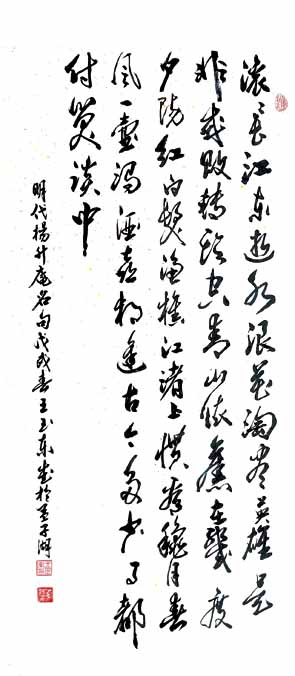 滚〻長江东逝水浪花淘尽英雄是
非成敗转头空青山依舊在幾度
夕陽红白髮漁樵江渚上惯看穐月春
風一壶濁酒喜相逢古今多少事都
付笑谈中
明代楊升庵名句戊戌春王玉东书於